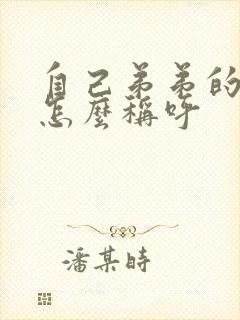 自己弟弟的
怎麼稱呼
潘某時